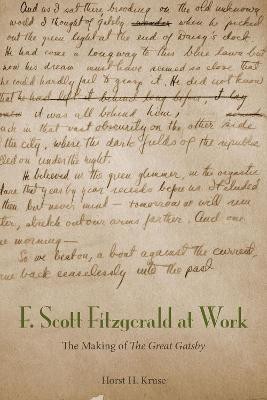 And as I sat there brooding on the old unknown
world I thought of Gatsby wonder when he picked
out the green light at the end of Daisy's dock.
He had come a long way to this blue lawn but
now his dream must have seemed so close that
he could hardly fail to grasp it. He did not know
that he had left it behind long before,
it was all behind him,
back in that vast obscurity on the other side
the city, where the dark fields of the republic
rolled on under the night.
He believed in the green glimmer, in the orgastic
future that year by year recedes before us. It eluded
then but never mind — tomorrow we will run
faster, stretch out our arms farther. And one
fine morning —
So we beat on, a boat against the current,
borne back ceaselessly into the past
F. Scott Fitzgerald at Work
The Making of The Great Gatsby
Horst H. Kruse